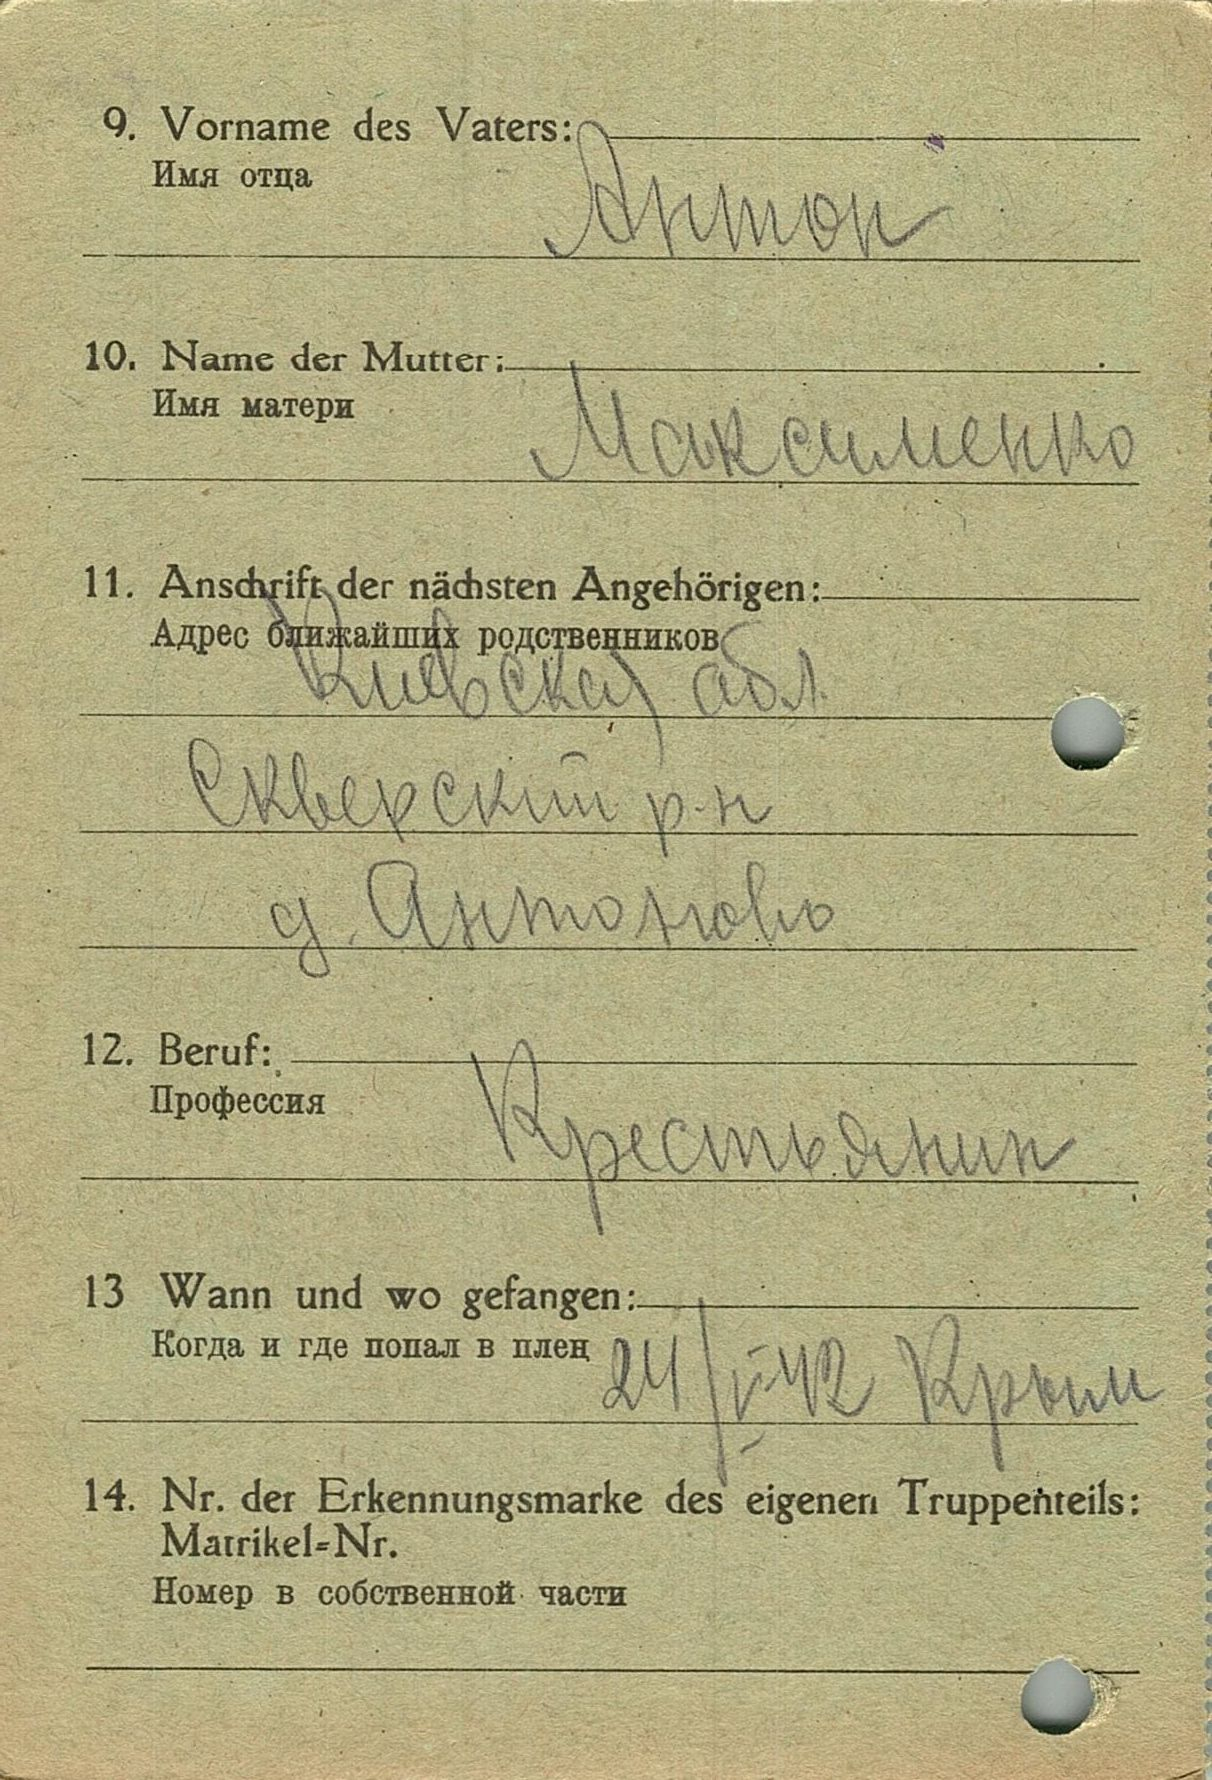 9. Vorname des Vaters:
Имя отца
Антон
10. Name der Mutter:
Имя матери
Максименко
11. Anschrift der nächsten Angehörigen:
Адрес ближайших родственников
Киевская обл.
Скверский р-н
д. Антоново
12. Beruf:
Профессия
Крестьянин
13 Wann und wo gefangen:
Когда и где попал в плен
24/V 42 Крым
14. Nr. der Erkennungsmarke des eigenen Truppenteils:
Matrikel-Nr.
Номер в собственной части